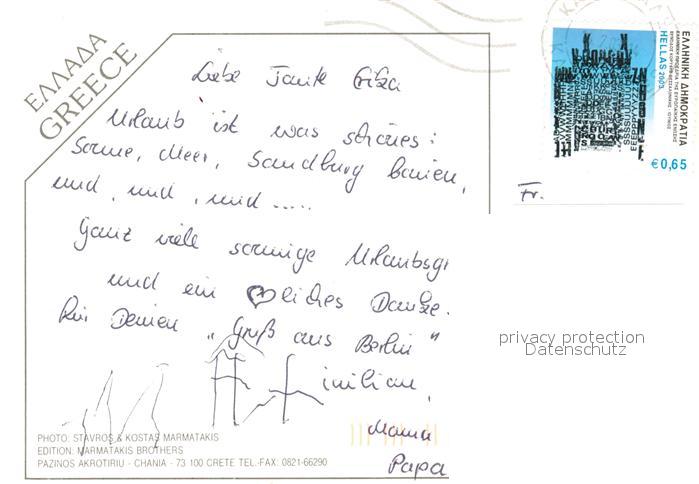 ΕΛΛΑΔΑ
GREECE
Liebe Tante
Urlaub ist was schönes:
Sonne, Meer, Sandburg bauen,
und, und, und .....
Ganz viele sonnige Urlaubsgr
und ein ♡liches Danke
für Deinen „Gruß aus Berlin"
Mama
Papa
PHOTO: STAVROS & KOSTAS MARMATAKIS
EDITION: MARMATAKIS BROTHERS
PAZINOS AKROTIRIU - CHANIA - 73 100 CRETE TEL.-FAX: 0821-66290
ΕΛΛΗΝΙΚΗ ΔΗΜΟΚΡΑΤΙΑ
HELLAS 2003
€0,65
Fr.
privacy protection
Datenschutz